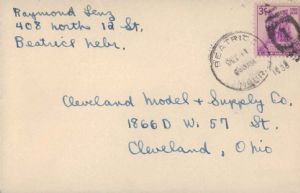 Raymond Lenz
408 north 12 St,
Beatrice Nebr.
3¢
BEATRICE
OCT 11
NEBR.
1938
Cleveland Model & Supply Co.
1866 D W. 57 St.
Cleveland, Ohio